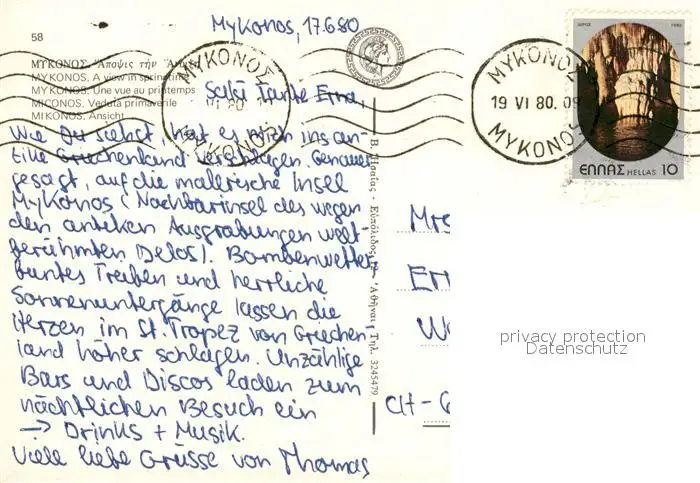 Mykonos, 17.6.80
58
ΜΥΚΟΝΟΣ. Ἄποψις τὴν Ἄνοιξη
MYKONOS. A view in springtime
MYKONOS. Une vue au printemps
MICONOS. Veduta primaverile
MIKONOS. Ansicht
ΜΥΚΟΝΟΣ
VI 80
ΜΥΚΟΝΟΣ
ΜΥΚΟΝΟΣ
19 VI 80. 09
ΜΥΚΟΝΟΣ
1980
ΕΛΛΑΣ HELLAS 10
Tante Erna,
Wie Du siehst, hat es mich ins an-
tike Griechenland verschlagen. Genauer
gesagt, auf die malerische Insel
Mykonos (Nachbarinsel des wegen
den antiken Ausgrabungen welt-
berühmten Delos). Bombenwetter,
buntes Treiben und herrliche
Sonnenuntergänge lassen die
Herzen im St. Tropez von Griechen-
land höher schlagen. Unzählige
Bars und Discos laden zum
nächtlichen Besuch ein
→ Drinks + Musik.
Viele liebe Grüsse von Thomas
Εὐπόλιδος - Ἀθῆναι, Τηλ. 3245479
Mrs
CH-
privacy protection
Datenschutz